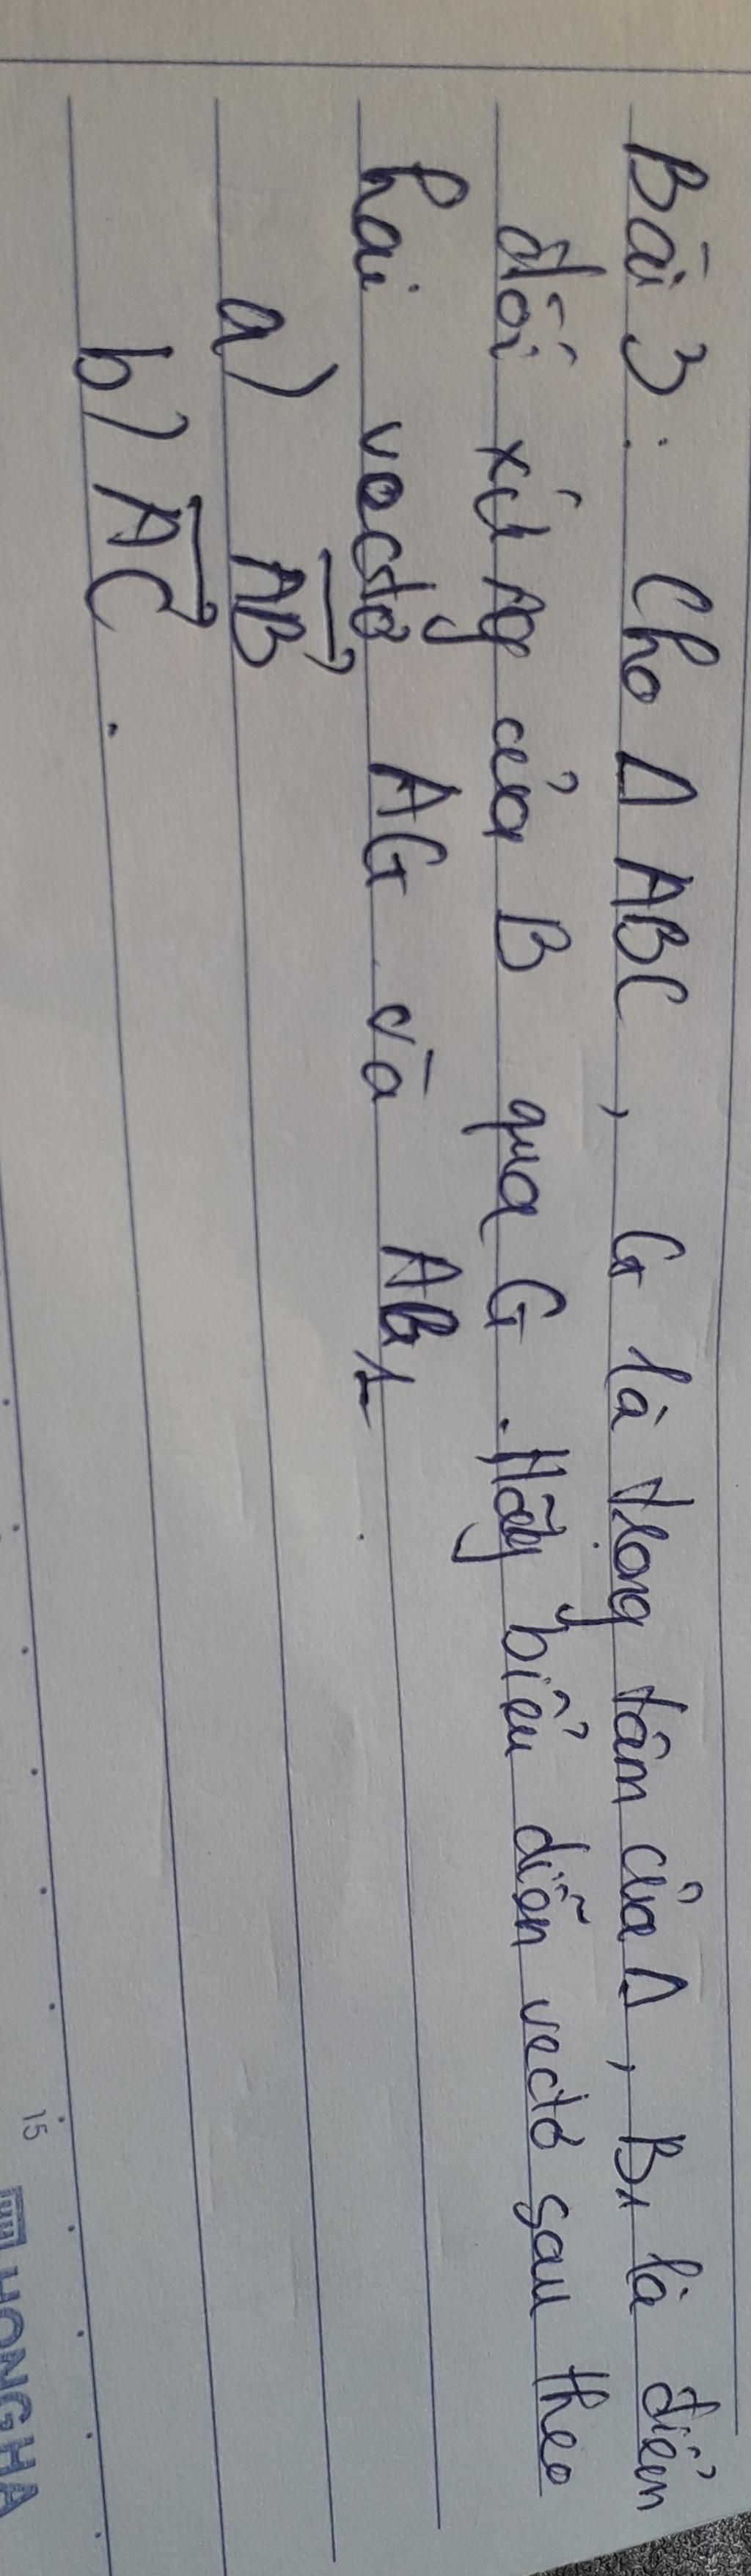 Bài 3: Cho Δ ABC, G là trọng tâm của Δ, B₁ là điểm
đối xứng của B qua G. Hãy biểu diễn vectơ sau theo
hai vectơ AG và AB₁
a) \overrightarrow{AB}
b) \overrightarrow{AC}.
15
HONG HA